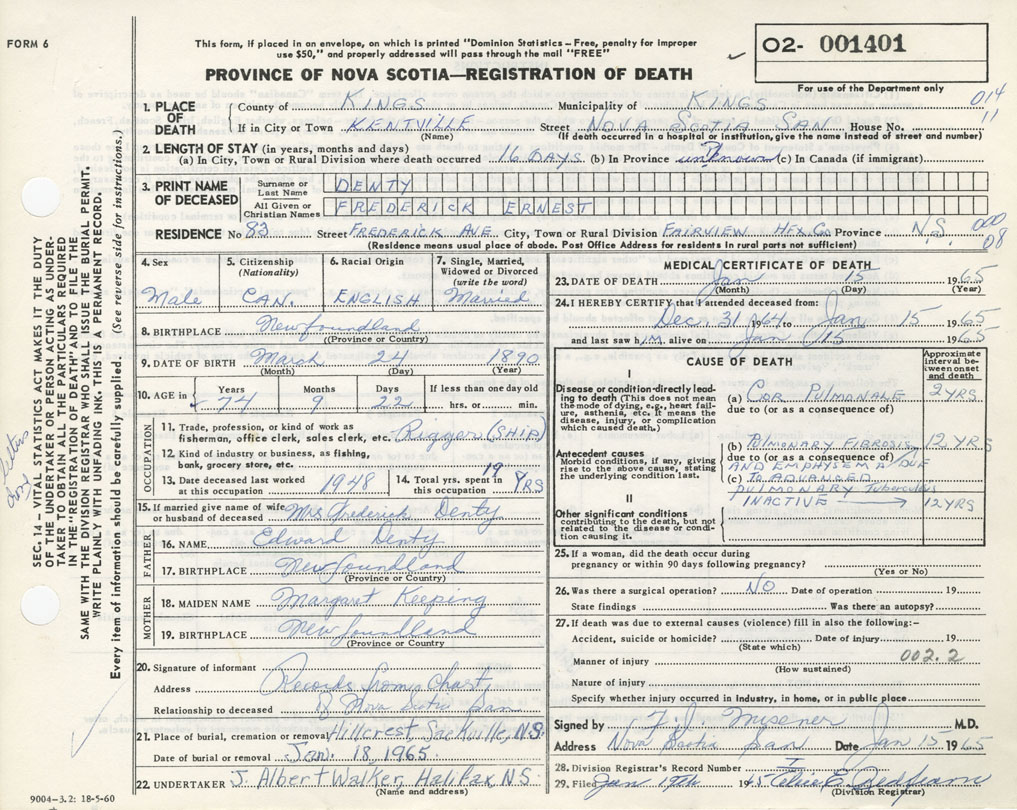 FORM 6
This form, if placed in an envelope, on which is printed "Dominion Statistics–Free, penalty for improper
use $50," and properly addressed will pass through the mail "FREE"
PROVINCE OF NOVA SCOTIA—REGISTRATION OF DEATH
O2- 001401
For use of the Department only
014
11
1. PLACE OF DEATH
County of KINGS Municipality of KINGS
If in City or Town KENTVILLE Street NOVA SCOTIA SAN House No.
(Name) (If death occurred in a hospital or institution, give the name instead of street and number)
2. LENGTH OF STAY (in years, months and days)
(a) In City, Town or Rural Division where death occurred 16 DAYS (b) In Province unknown (c) In Canada (if immigrant)
3. PRINT NAME OF DECEASED
Surname or Last Name DENTY
All Given or Christian Names FREDERICK ERNEST
RESIDENCE No 83 Street FREDERICK AVE City, Town or Rural Division FAIRVIEW HFX Co. Province N.S.
000
08
(Residence means usual place of abode. Post Office Address for residents in rural parts not sufficient)
4. Sex
Male
5. Citizenship
(Nationality)
CAN.
6. Racial Origin
ENGLISH
7. Single, Married,
Widowed or Divorced
(write the word)
Married
8. BIRTHPLACE Newfoundland
((Province or Country)
9. DATE OF BIRTH March 24 1890
(Month) (Day) (Year)
10. AGE in
Years Months Days If less than one day old
74 9 22 hrs. or min.
OCCUPATION
11. Trade, profession, or kind of work as
fisherman, office clerk, sales clerk, etc. Rigger (SHIP)
12. Kind of industry or business, as fishing,
bank, grocery store, etc.
13. Date deceased last worked
at this occupation 1948
14. Total yrs. spent in
this occupation 19 YRS
15. If married give name of wife
or husband of deceased Mrs Frederick Denty
FATHER
16. NAME Edward Denty
17. BIRTHPLACE Newfoundland
(Province or Country)
MOTHER
18. MAIDEN NAME Margaret Keeping
19. BIRTHPLACE Newfoundland
(Province or Country)
20. Signature of informant Records from Chart,
Address
Relationship to deceased Nova Scotia San
21. Place of burial, cremation or removal Hillcrest Sackville, N.S.
Date of burial or removal Jan. 18, 1965.
22. UNDERTAKER J. Albert Walker, Halifax, N.S.
(Name and address)
9004-3.2: 18-5-60
MEDICAL CERTIFICATE OF DEATH
23. DATE OF DEATH Jan 15 1965
(Month) (Day) (Year)
24. I HEREBY CERTIFY that I attended deceased from:
Dec. 31 1964 to Jan 15 1965
and last saw h im alive on Jan 15 1965
CAUSE OF DEATH
Approximate
interval be-
tween onset
and death
I
Disease or condition directly lead-
ing to death (This does not mean
the mode of dying, e.g., heart fail-
ure, asthenia, etc. It means the
disease, injury, or complication
which caused death.)
(a) COR PULMONALE 2 YRS
due to (or as a consequence of)
Antecedent causes
Morbid conditions, if any, giving
rise to the above cause, stating
the underlying condition last.
(b) PULMONARY FIBROSIS 12 YRS
due to (or as a consequence of)
AND EMPHYSEMA DUE
(c) TO ADVANCED
PULMONARY Tuberculosis
INACTIVE 12 YRS
II
Other significant conditions
contributing to the death, but not
related to the disease or condi-
tion causing it.
25. If a woman, did the death occur during
pregnancy or within 90 days following pregnancy?
(Yes or No)
26. Was there a surgical operation? NO Date of operation 19
State findings Was there an autopsy?
27. If death was due to external causes (violence) fill in also the following:–
Accident, suicide or homicide? Date of injury 19
(State which)
Manner of injury 002.2
(How sustained)
Nature of injury
Specify whether injury occurred in industry, in home, or in public place
Signed by F. J. Misener M.D.
Address Nova Scotia San Date Jan 15 1965
28. Division Registrar's Record Number
29. Filed Jan 19th
(Division Registrar)
SEC. 14 – VITAL STATISTICS ACT MAKES IT THE DUTY
OF THE UNDERTAKER OR PERSON ACTING AS UNDER-
TAKER TO OBTAIN ALL THE PARTICULARS REQUIRED
IN THE "REGISTRATION OF DEATH" AND TO FILE THE
SAME WITH THE DIVISION REGISTRAR WHO SHALL ISSUE THE BURIAL PERMIT.
WRITE PLAINLY WITH UNFADING INK. THIS IS A PERMANENT RECORD.
Every item of information should be carefully supplied. (See reverse side for instructions.)